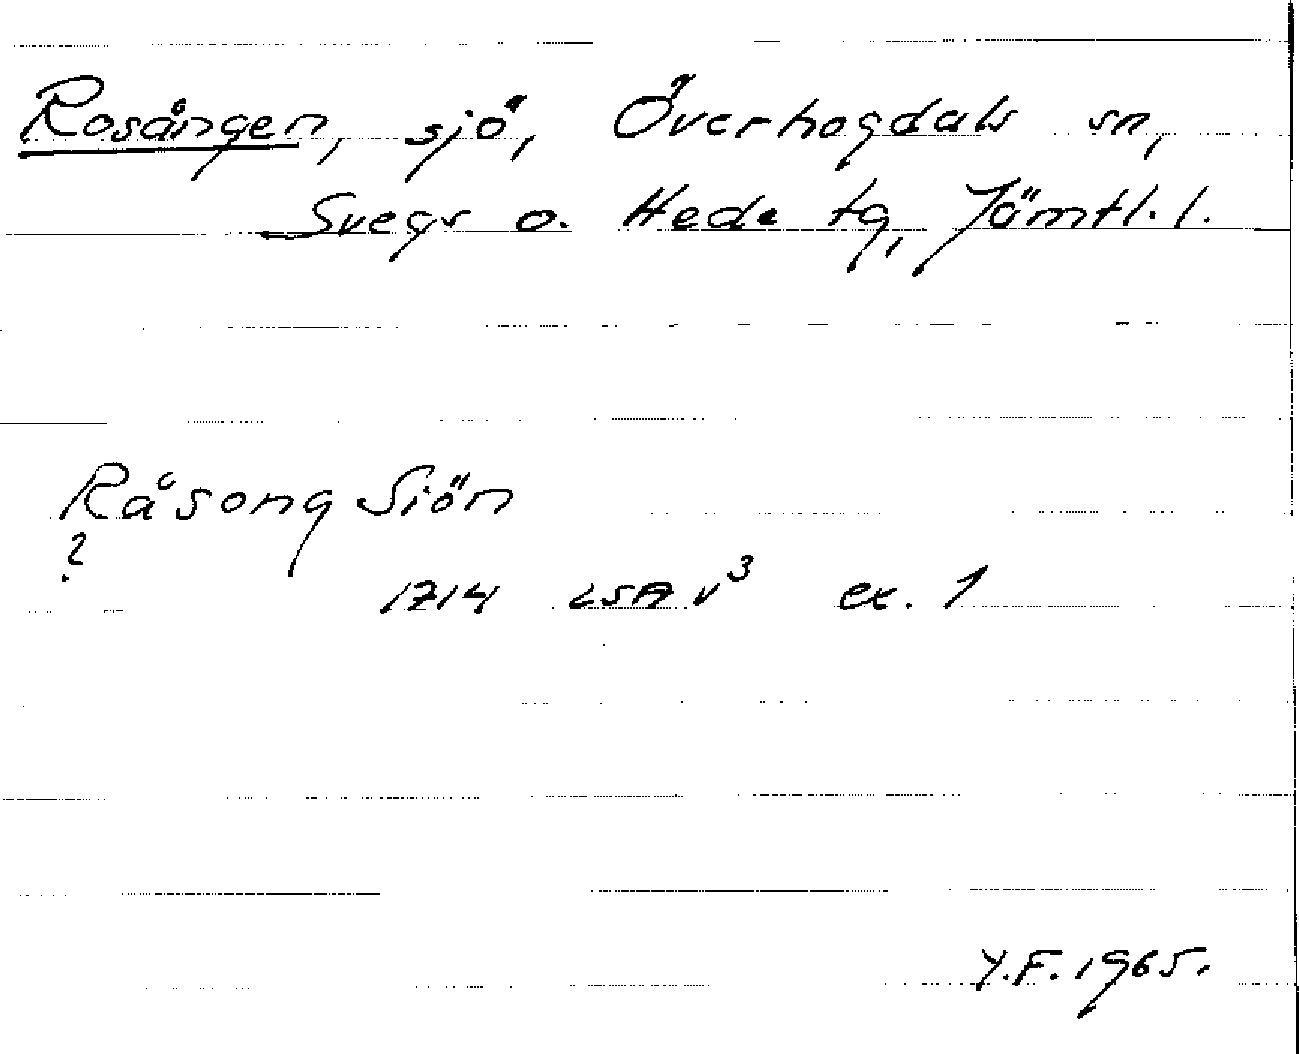 Rosången, sjö, Överhogdals sn,
Svegs o. Hede tg, Jämtl. l.
Råsong Siön
?
1714 LSA v³ ex. 1
Y.F. 1965.